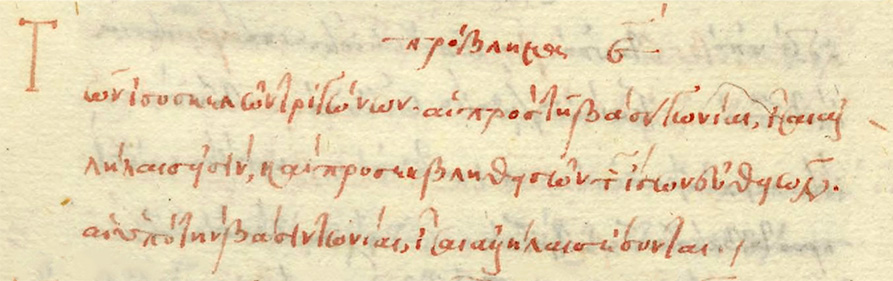 πρόβλημα ϛʹ
Τῶν ἰσοσκελῶν τριγώνων αἱ πρὸς τὴν βάσιν γωνίαι, ἴσαι ἀλ
λήλαις εἰσίν, καὶ προσεκβληθεισῶν τῶν ἴσων εὐθειῶν.
αἱ ὑπὸ τὴν βάσιν γωνίαι, ἴσαι ἀλλήλαις ἔσονται.